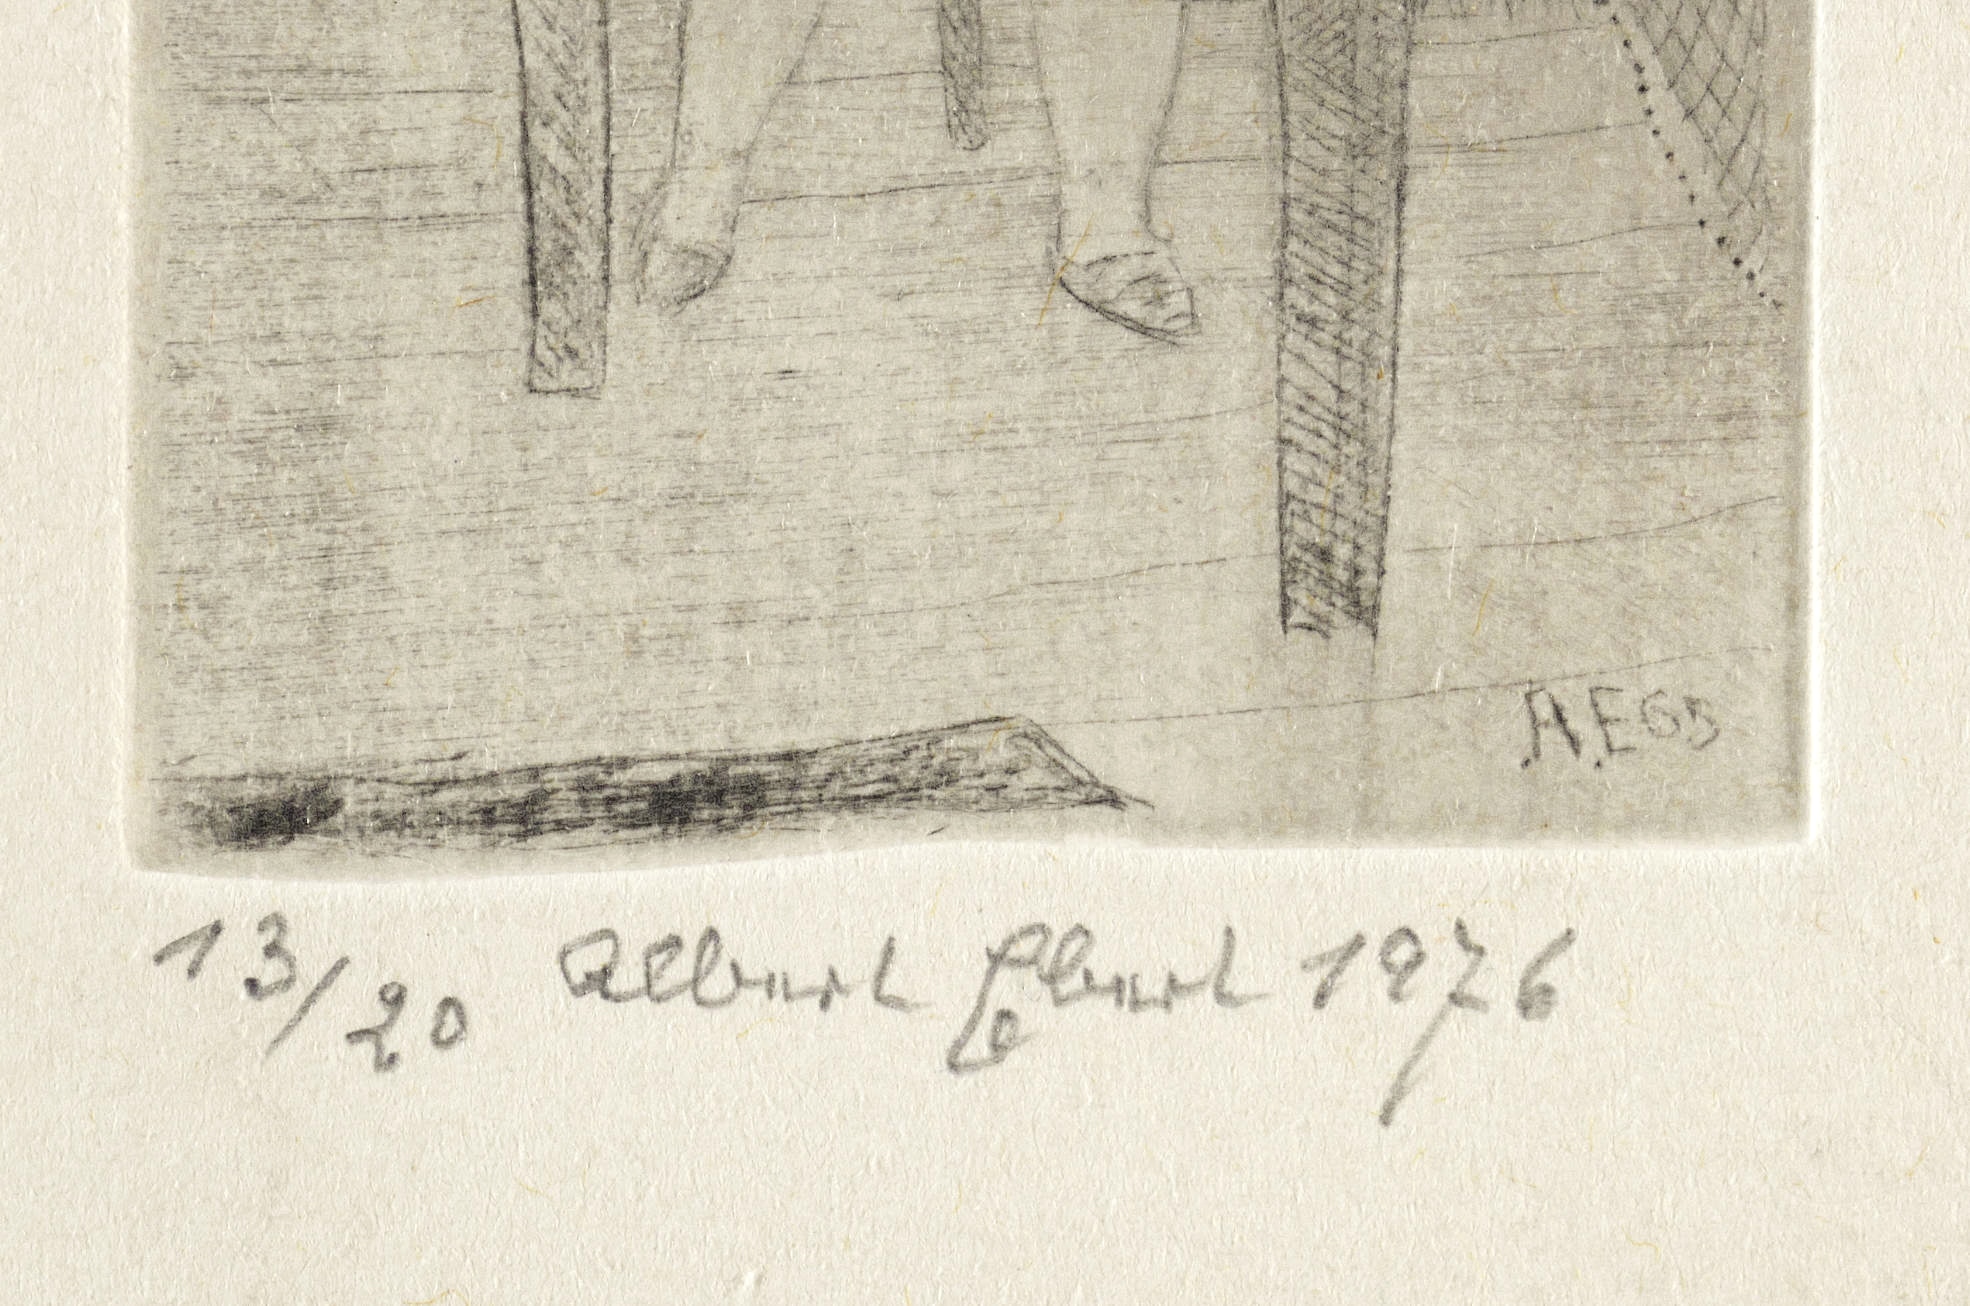 A.E.65
13/20 Albert Ebert 1976